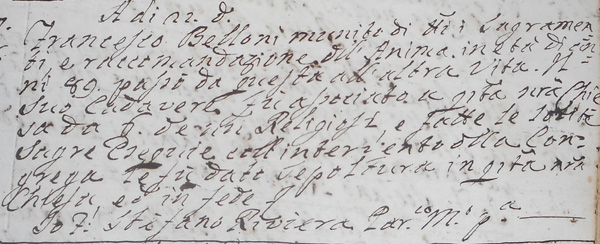 A di 22. d.
Francesco Belloni munito di tti i Sagramen
ti e raccomandazione dell'Anima in età di an
ni 89. passò da questa all'altra Vita. Il
suo Cadavere fu associato a qsta nra Chie
sa da 6. de nri Religiosi, e fatte le solite
sagre Esequie coll'intervento della Con
grega le fu dato sepoltura in qsta nra
Chiesa, ed in fede
Io F. Stefano Riviera Par.co M.o p.a